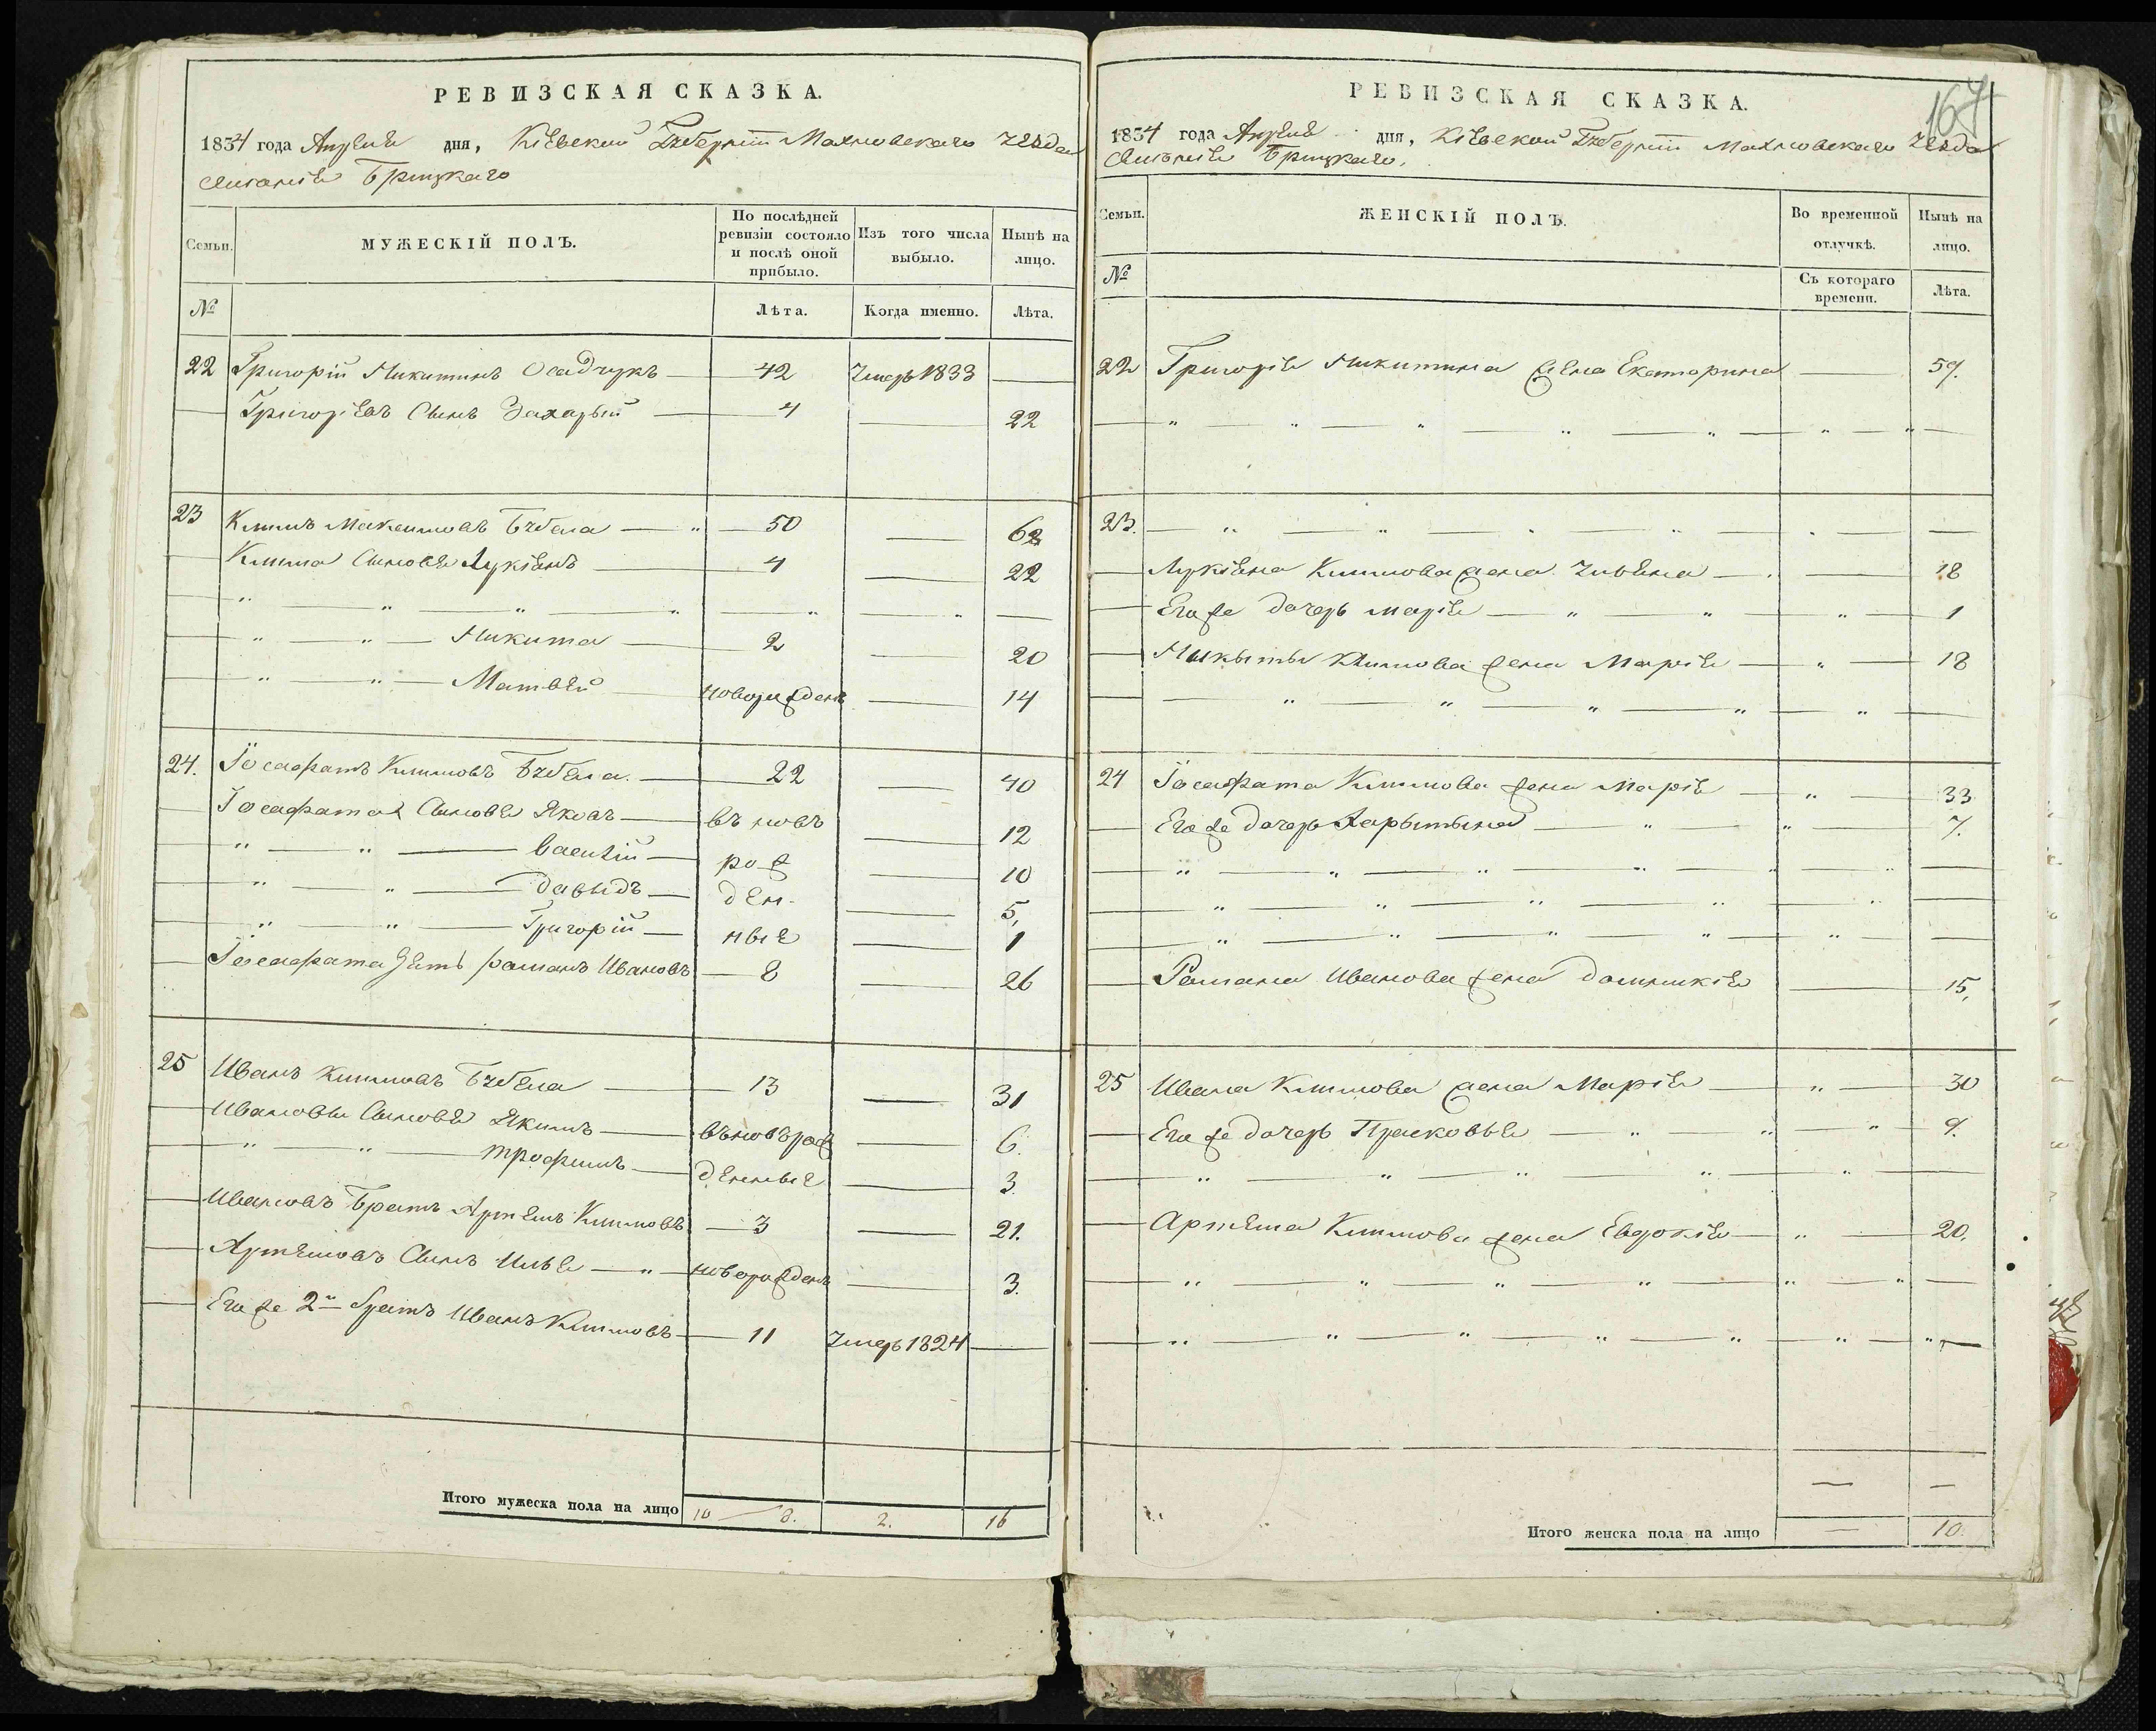 РЕВИЗСКАЯ СКАЗКА.
1834 года Апреля дня, Кіевской Губерніи Махновскаго Уезда
Брицкаго
Семьи. МУЖЕСКІЙ ПОЛЪ. По послѣдней ревизіи состояло и послѣ оной прибыло. Изъ того числа выбыло. Нынѣ на лицо.
№ Лѣта. Когда именно. Лѣта.
22 Григорій Никитинъ Осадчукъ — 42 Умеръ 1833 —
— Григоріевъ Сынъ Захарый — 4 — 22
23 Климъ Максимовъ Бубела — " — 50 — 62
— Клима Сыновя Лукіянъ — 4 — 22
" — " — " — " — " — " —
— " — " — Никита — 2 — 20
— " — " — Матвей — новорожденъ — 14
24. Іосафатъ Климовъ Бубела. — 22 — 40
— Іосафата Сыновя Яковъ — въ новъ — 12
— " — " — Василій — рож — 10
— " — " — Давыдъ — ден- — 5,
— " — " — Григорій — ные — 1
— Іосафата Зять Романъ Ивановъ — 8 — 26
25 Иванъ Климовъ Бубела — 13 — 31
— Ивановы Сыновя Якимъ — въновърож — 6.
— " — " — Трофимъ — денные — 3.
— Ивановъ Братъ Артемъ Климовъ — 3 — 21.
— Артемовъ Сынъ Илья — " — новорожденъ — 3.
— Его же 2й братъ Иванъ Климовъ — 11 Умеръ 1824 —
Итого мужеска пола на лицо 10 — 8. 2. 16
167
РЕВИЗСКАЯ СКАЗКА.
1834 года Апреля дня, Кіевской Губерніи Махновскаго Уезда
Брицкаго.
Семьи. ЖЕНСКІЙ ПОЛЪ. Во временной отлучкѣ. Нынѣ на лицо.
№ Съ котораго времени. Лѣта.
22 Григорія Никитина жена Екатерина — 59.
— " — " — " — " — " — " — " —
23. — " — " — " — " — " — —
— Лукіяна Климова жена Ульяна — . — 18
— Его же дочерь Марія — " — " — " — 1
— Никыты Климова жена Марія — " — 18
— — " — " — " — " — " —
24 Іосафата Климова жена Марія — " — 33
— Его же дочерь Харытына — " — " — 7.
— " — " — " — " — " — " —
— " — " — " — " — " —
— " — " — " — " — " —
— Романа Иванова жена Домникія — 15,
25 Ивана Климова жена Марія — " — 30
— Его же дочерь Прасковья — " — " — " — 9.
— " — " — " — " — " —
— Артема Климова жена Евдокія — " — 20.
— " — " — " — " — " — " —
— " — " — " — " — " — " — " —
— —
Итого женска пола на лицо — 10.